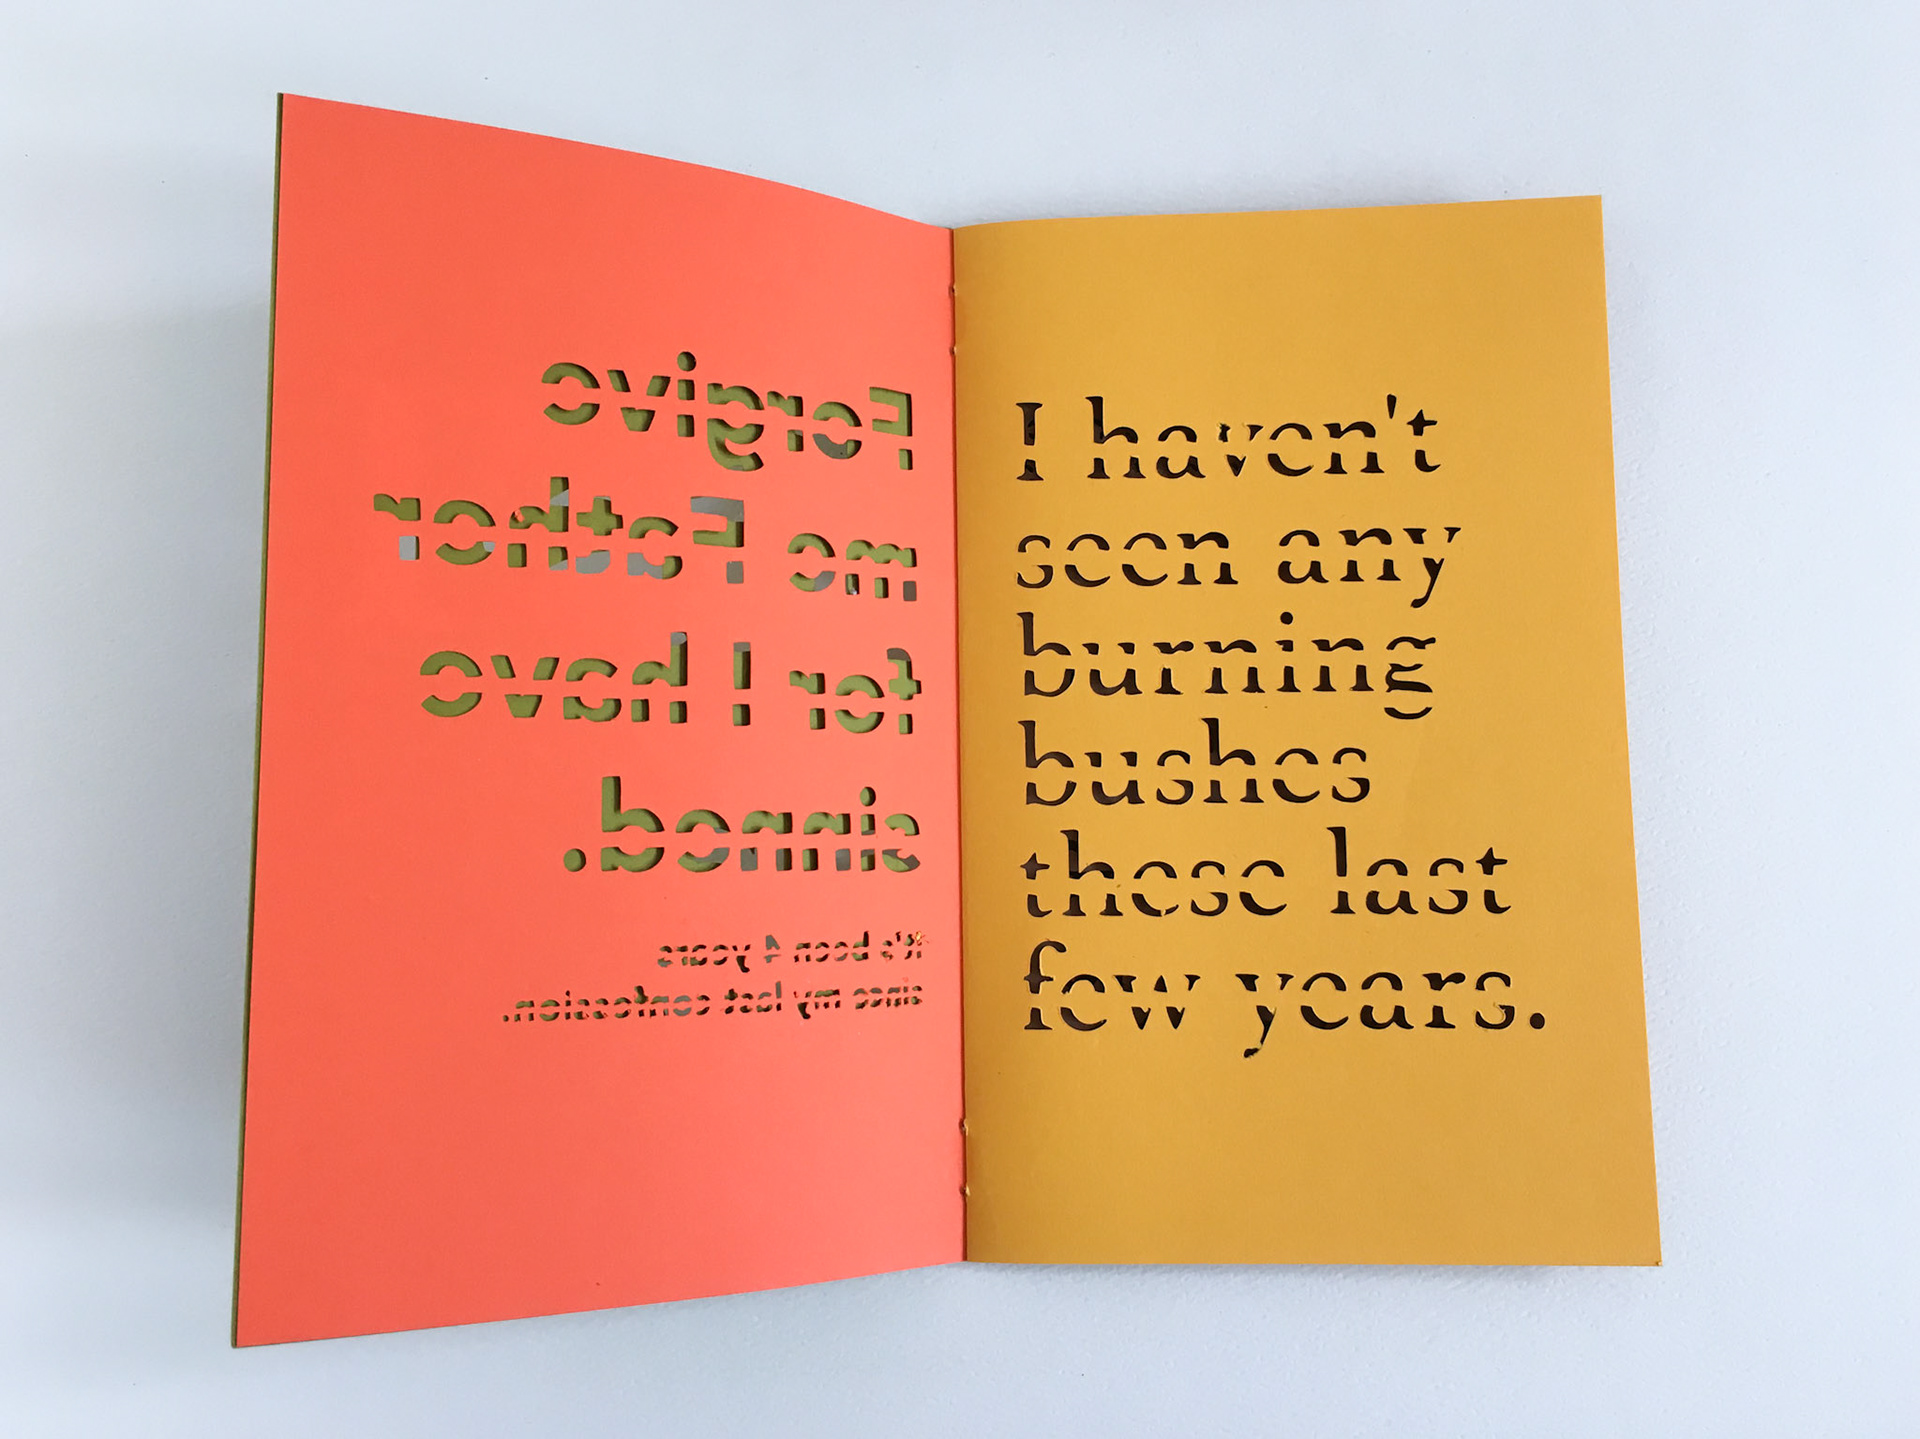 Forgive
me Father
for I have
sinned.
it's been 4 years
since my last confession.
I haven't
seen any
burning
bushes
these last
few years.